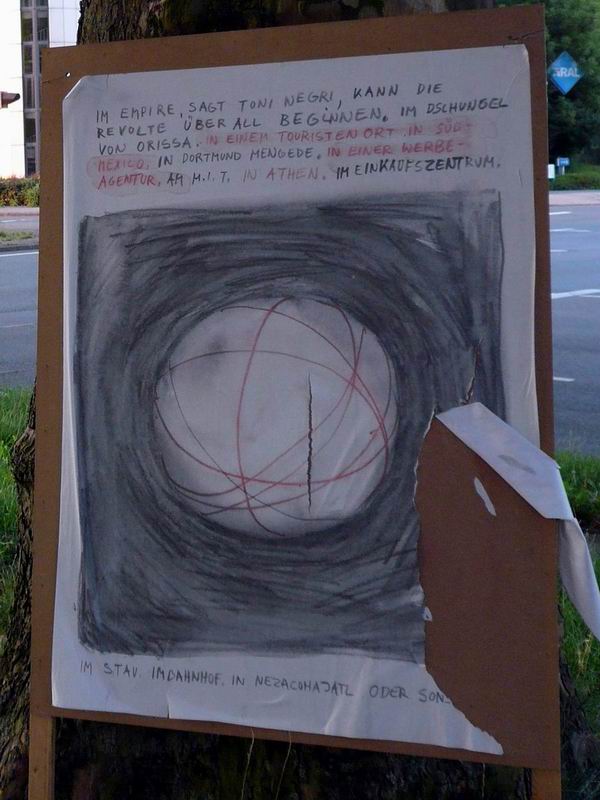 IM EMPIRE, SAGT TONI NEGRI, KANN DIE
REVOLTE ÜBERALL BEGINNEN. IM DSCHUNGEL
VON ORISSA. IN EINEM TOURISTENORT IN SÜD-
MEXICO. IN DORTMUND MENGEDE. IN EINER WERBE-
AGENTUR, AM M.I.T. IN ATHEN. IM EINKAUFSZENTRUM.
IM STAU. IM BAHNHOF. IN NEZACOHAJATL ODER SONS
ARAL